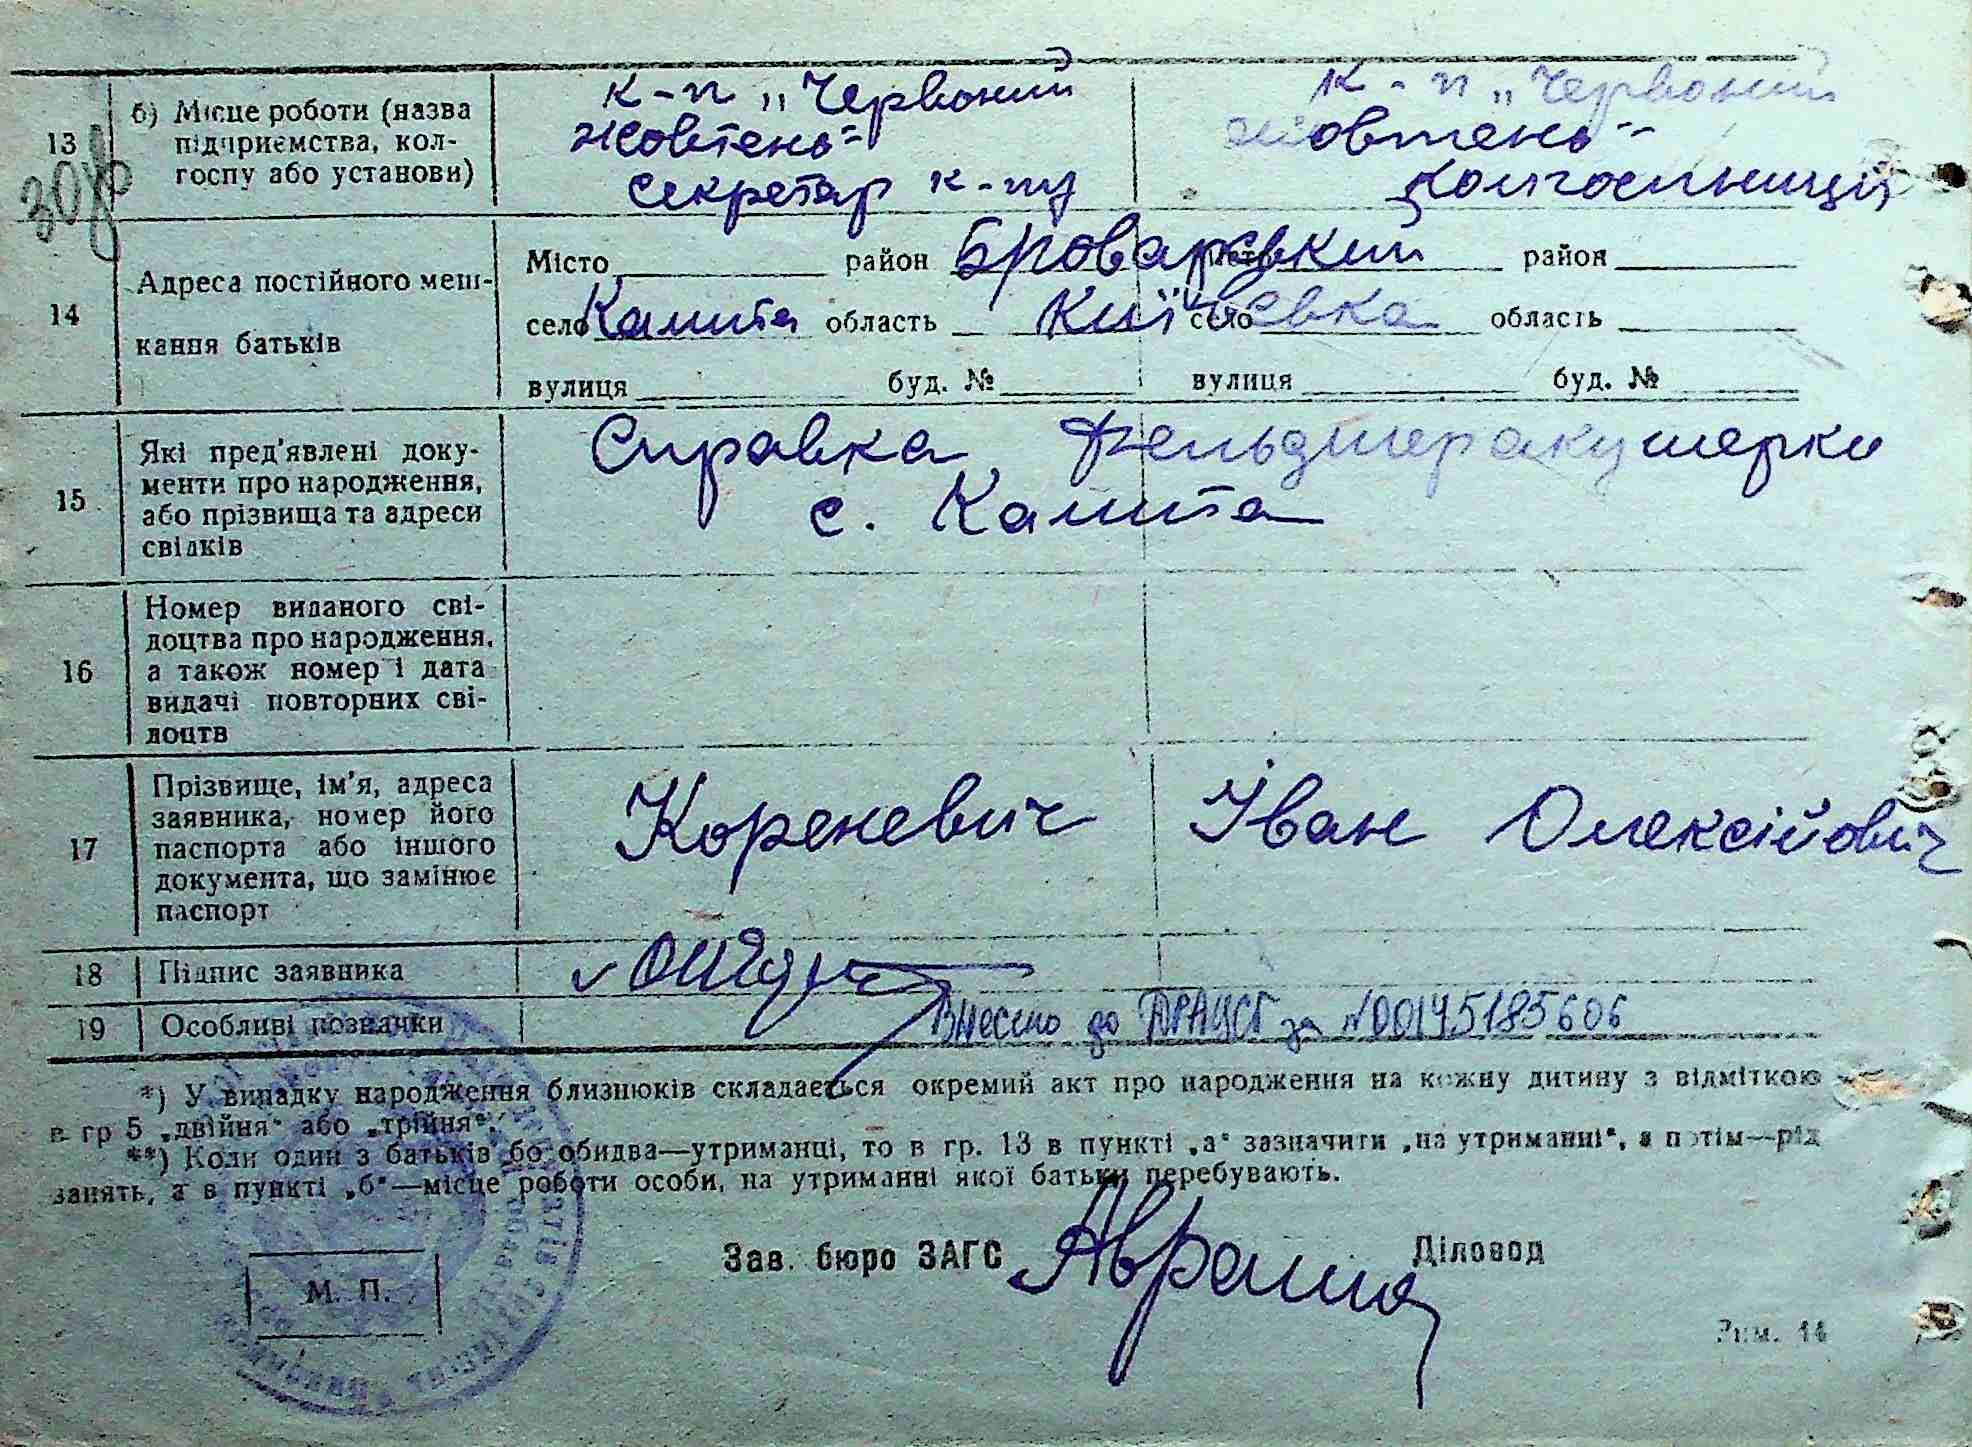 к-п „Червоний к-п „Червоний
13 б) Місце роботи (назва підприємства, колгоспу або установи) Жовтень" Жовтень"
секретар к-пу колгоспниця
14 Адреса постійного мешкання батьків
Місто район Броварський район
село Калита область Київська село область
вулиця буд. № вулиця буд. №
15 Які пред'явлені документи про народження, або прізвища та адреси свідків
Справка фельдшеракушерки
с. Калита
16 Номер виданого свідоцтва про народження, а також номер і дата видачі повторних свідоцтв
17 Прізвище, ім'я, адреса заявника, номер його паспорта або іншого документа, що замінює паспорт
Кореневич Іван Олексійович
18 Підпис заявника
19 Особливі позначки Внесено до ДРАЦСГ за №00145185606
*) У випадку народження близнюків складається окремий акт про народження на кожну дитину з відміткою
в гр 5 „двійня" або „трійня".
**) Коли один з батьків бо обидва—утриманці, то в гр. 13 в пункті „а" зазначити „на утриманні", а потім—рід
занять, а в пункті „б"—місце роботи особи, на утриманні якої батьки перебувають.
Зав. бюро ЗАГС Діловод
М. П.